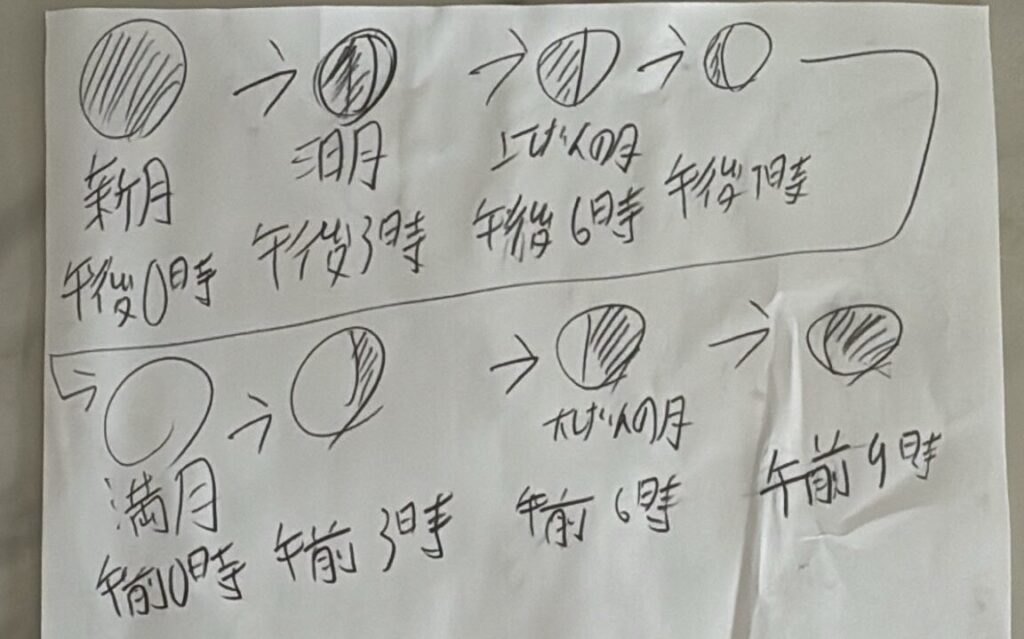 新月
午後0時
三日月
午後3時
上げんの月
午後6時
満月
午前0時
午前3時
下げんの月
午前6時
午前9時